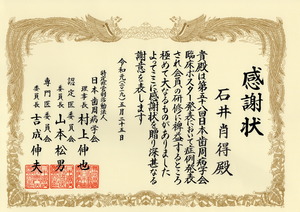 感謝状
石井肖得殿
貴殿は第五十八回日本歯周病学会
臨床ポスター発表において症例発表
され会員の研修に裨益するところ
極めて大なるものがありました
よってここに感謝状を贈り深甚なる
謝意を表します
令和元年五月二十五日
特定非営利活動法人
日本歯周病学会
理事長 村上伸也
認定医委員会
委員長 山本松男
専門医委員会
委員長 吉成伸夫